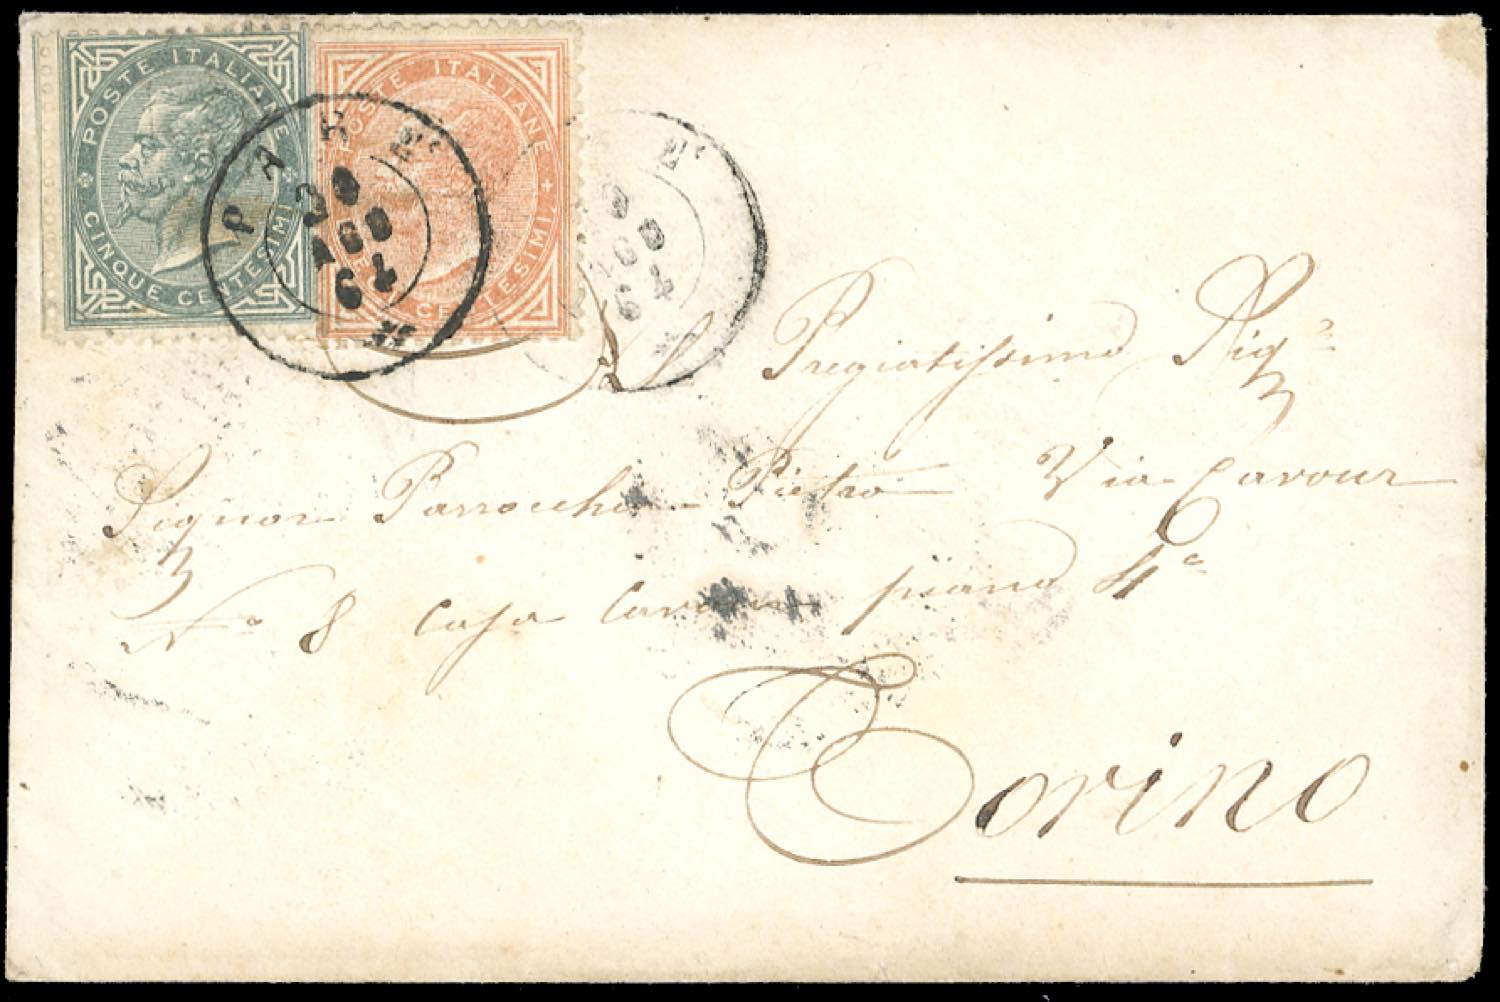 POSTE ITALIANE
CINQUE CENTESIMI
POSTE ITALIANE
CENTESIMI
PARE'
20
AGO
64
E'
0
AGO
64
Al Pregiatissimo Sigr
Signor Parrocchia Pietro Via Cavour
No 8 casa Cavour piano 4o
Torino